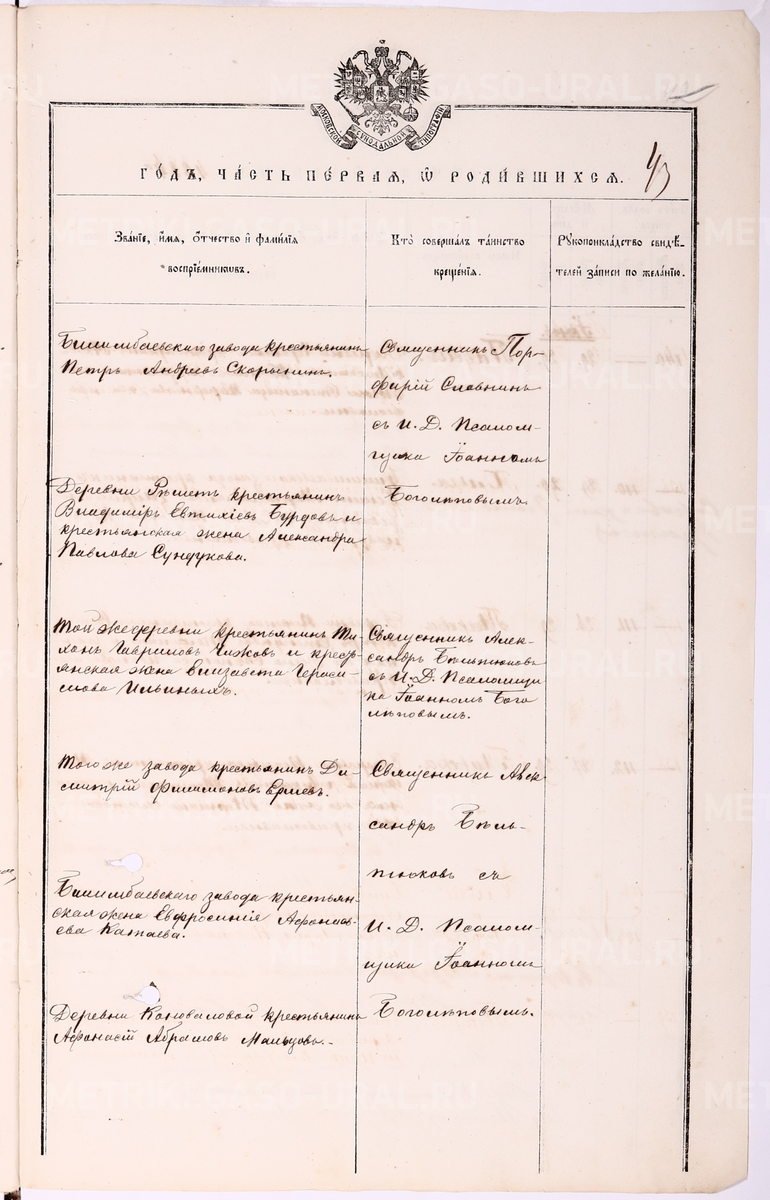 МОСКОВСКОЙ СѴНОДАЛЬНОЙ ТИПОГРАФІИ
ГО́ДЪ, ЧА́СТЬ ПЕ́РВАЯ, Ѽ РОДИ́ВШИХСЯ.
43
Зва́нїе, и́мя, о́тчество и҆ фами́лїя
воспрїе́мниковъ.
Кто̀ соверша́лъ та́инство
креще́нїя.
Рꙋкоприкла́дство свидѣ́-
телей за́писи по жела́нїю.
Билимбаевскаго завода крестьянинъ
Петръ Андреевъ Скорынинъ.
Священникъ Пор-
фирій Славнинъ
съ И. Д. Псалом-
щика Іоанномъ
Боголѣповымъ.
Деревни Рѣшетъ крестьянинъ
Владиміръ Евтихіевъ Бурдовъ и
крестьянская жена Александра
Павлова Сундукова.
Той же деревни крестьянинъ Ти-
хонъ Гавриловъ Чижовъ и кресть-
янская жена Елизавета Гераси-
мова Ильиныхъ.
Священникъ Алек-
сандръ Бѣльтюковъ
съ И. Д. Псаломщи-
ка Іоанномъ Бого
лѣповымъ.
Того же завода крестьянинъ Ди-
митрій Филимоновъ Ершовъ.
Священникъ Алек
сандръ Бѣль-
тюковъ съ
И. Д. Псалом-
щика Іоанномъ
Боголѣповымъ.
Билимбаевскаго завода крестьян-
ская жена Евфросинія Афонась-
ева Катаева.
Деревни Коноваловой крестьянинъ
Афонасій Абрамовъ Мальцовъ.
METRIKI-GASO-URAL.RU